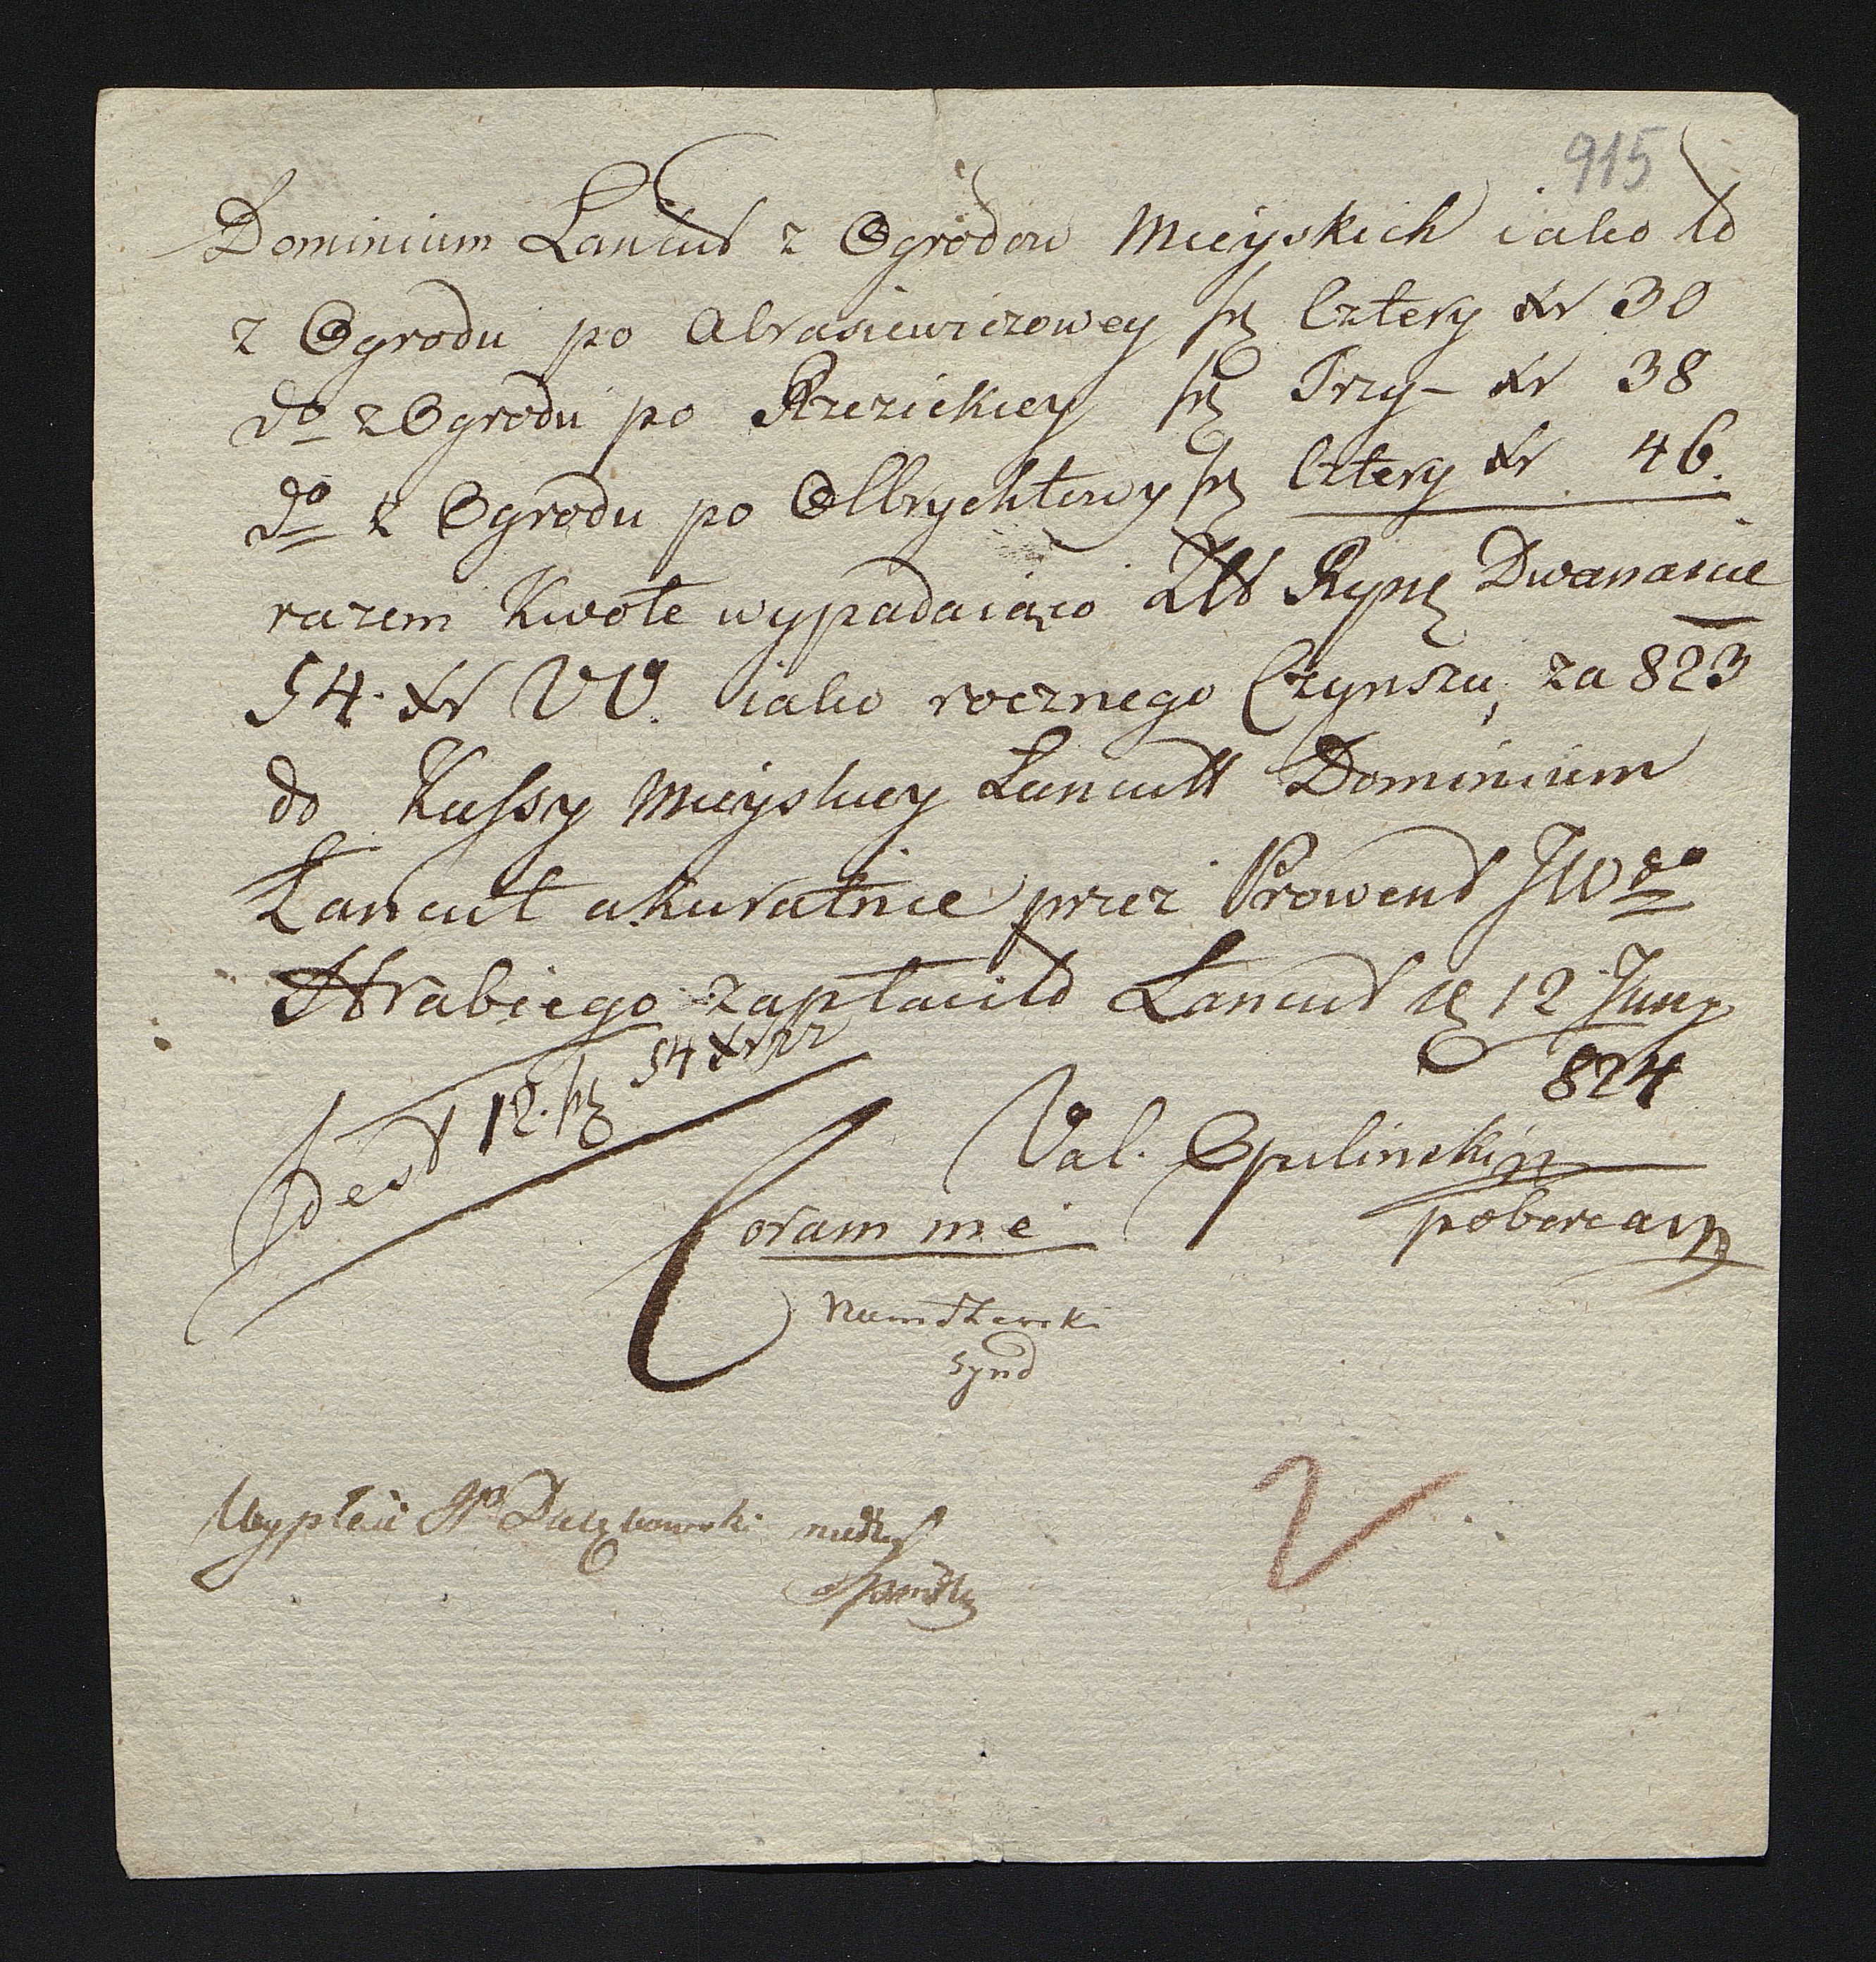 915
Dominium Łancut z Ogrodow Mieyskich iako to
z Ogrodu po Abrasiewiczowey fr Cztery Xr 30
do z Ogrodu po Rzezickiey fr Trzy – Xr 38
do z Ogrodu po Olbrychtowy fr Cztery Xr 46.
razem Kwote wypadaiąco Złt Ryns Dwanascie
54. Xr WW. iako rocznego Czynszu, za 823
do Kassy Mieyskiey Lancutt Dominium
Łancut akuratnie przez Prowent JWgo
Hrabiego zapłaciło Łancut d 12 Juny
824
Idest 12. fr 54 Xr
Val. Opulinski
poborca
Coram me
Synd
Wypłaci